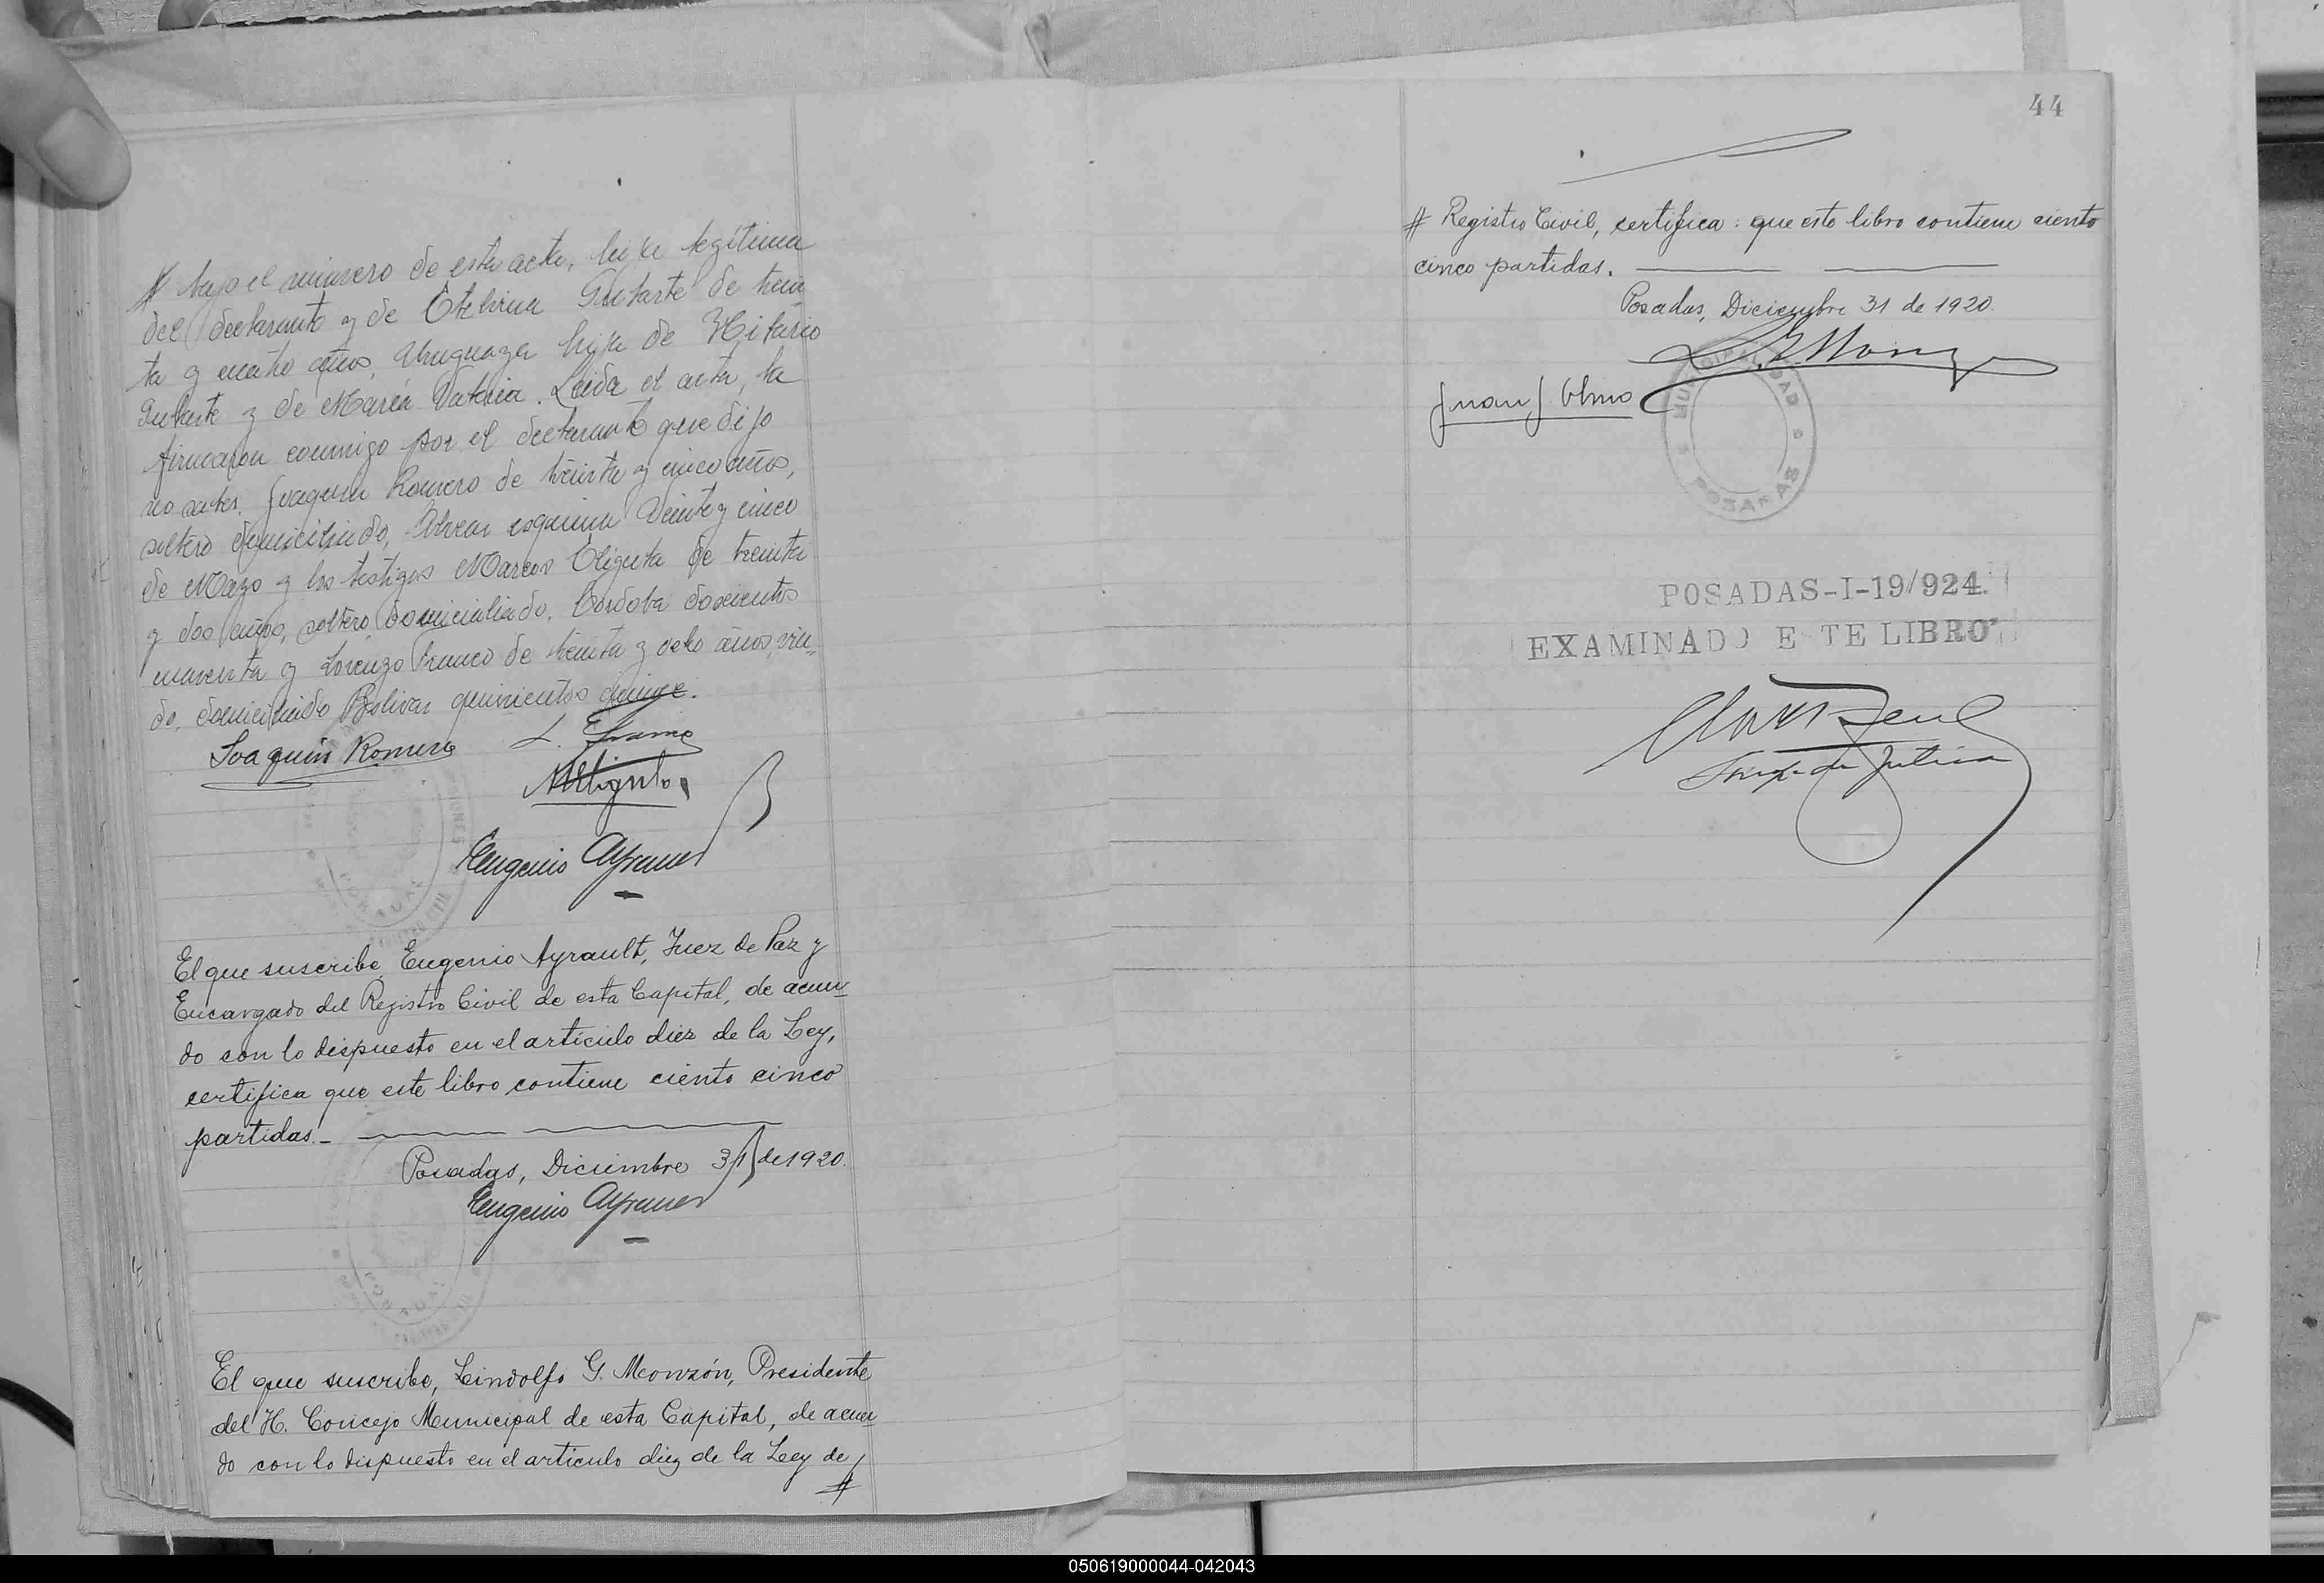 # bajo el número de esta acta, hija legítima
del declarante y de Etelvina Gularte de trein
ta y cuatro años, Uruguaya hija de Hilario
Gularte y de María Valeria. Leida el acta, la
firmaron conmigo por el declarante que dijo
no saber, Joaquin Romero de treinta y cinco años,
soltero domiciliado, Alvear esquina Veinte y cinco
de Mayo y los testigos Marcos de treinta
y dos años, soltero, domicialiado, Cordoba doscientos
cuarenta y Lorenzo Franco de treinta y ocho años, viu-
do, domiciliado Bolivar quinientos quince.
Joaquin Romero L. Franco
Eugenio Ayrault
El que suscribe, Eugenio Ayrault, Juez de Paz y
Encargado del Registro Civil de esta Capital, de acuer
do con lo dispuesto en el artículo diez de la Ley,
certifica que este libro contiene ciento cinco
partidas.-
Posadas, Diciembre 31 de 1920.
Eugenio Ayrault
El que suscribe, Lindolfo G. Monzón, Presidente
del H. Concejo Municipal de esta Capital, de acuer
do con lo dispuesto en el artículo diez de la Ley de
#
44
# Registro Civil, certifica: que este libro contiene ciento
cinco partidas.
Posadas, Diciembre 31 de 1920.
L. G. Monzón
Juan J. Olmo
MUNICIPALIDAD DE POSADAS
POSADAS-I-19/924.
EXAMINADO E TE LIBRO
050619000044-042043